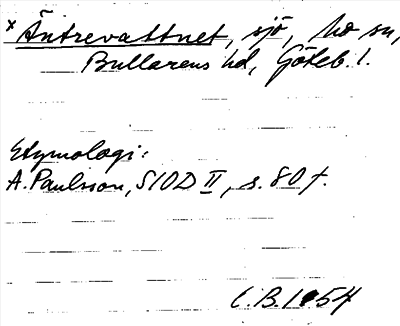 x Äntrevattnet, sjö, ho sn,
Bullarens hd, Göteb. l.
Etymologi:
A. Paulsson, SIOD II, s. 80 f.
C.B. 1954